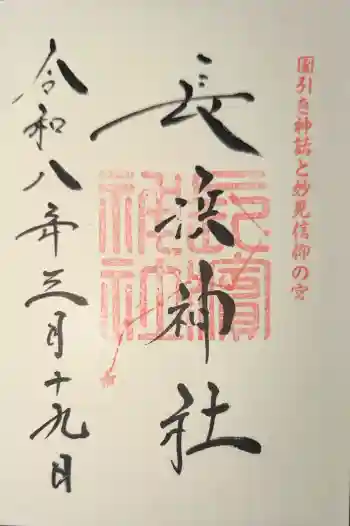 國引き神話と妙見信仰の宮
長浜神社
長濱神社
令和八年三月十九日